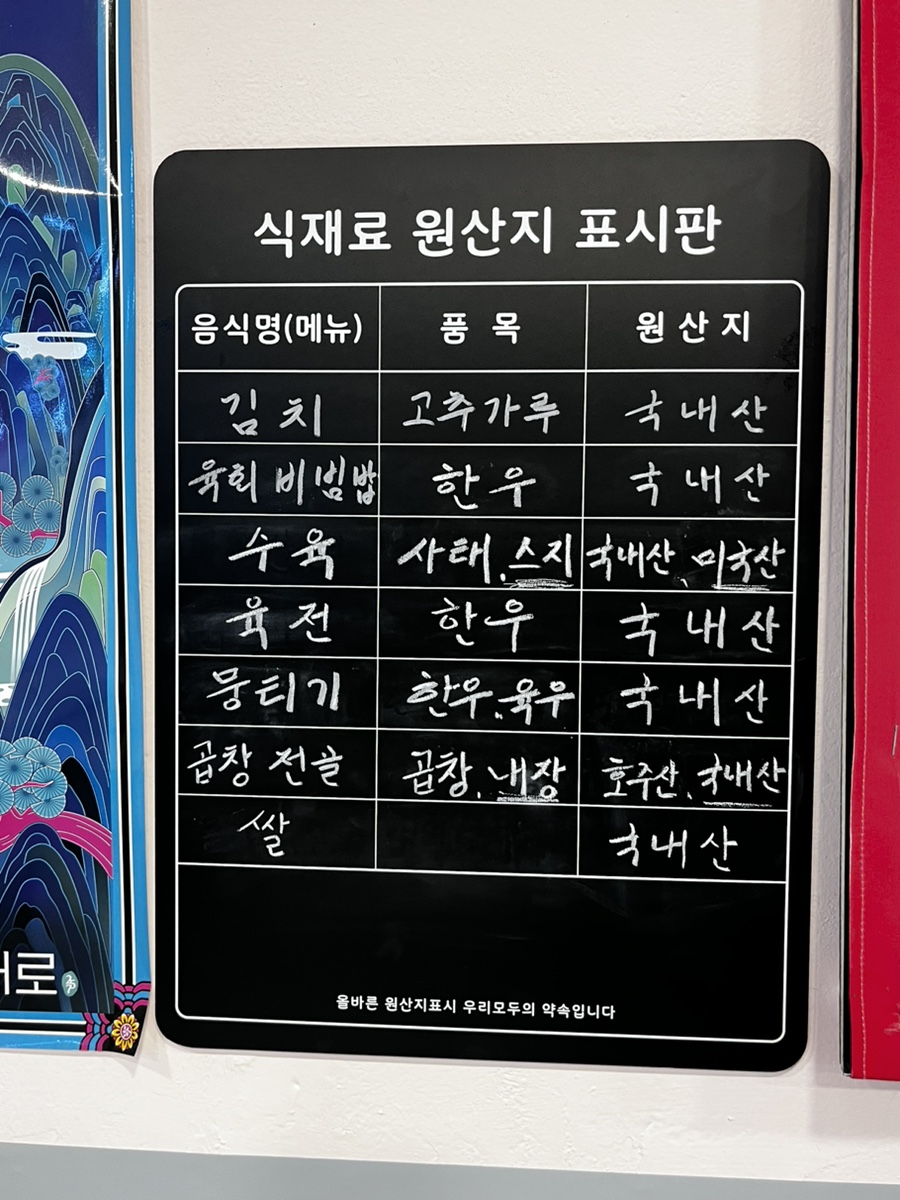 식재료 원산지 표시판
음식명(메뉴) 품 목 원 산 지
김치 고추가루 국내산
육회 비빔밥 한우 국내산
수육 사태, 스지 국내산, 미국산
육전 한우 국내산
뭉티기 한우, 육우 국내산
곱창 전골 곱창, 내장 호주산, 국내산
쌀 국내산
올바른 원산지표시 우리모두의 약속입니다
로